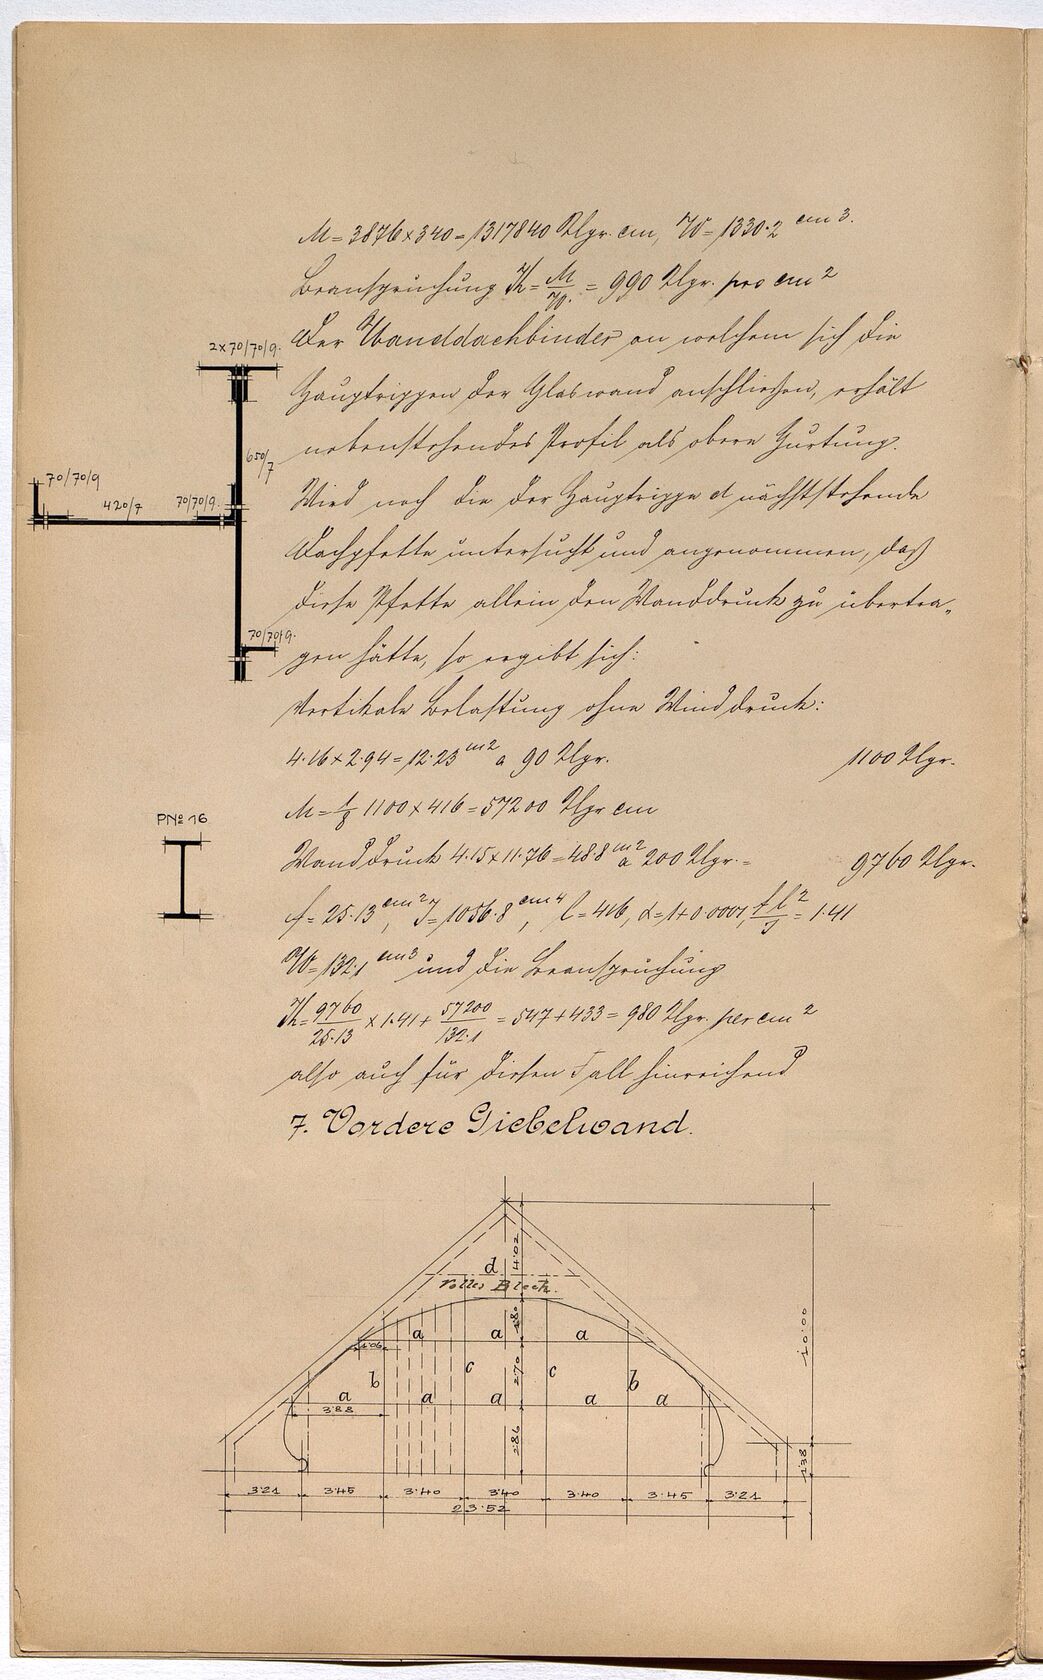 M = 3876 × 340 = 1317840 Klgr. cm, W = 1330·2 cm 3.
Beanspruchung K = M/W. = 990 Klgr. pro cm 2
Der Wanddachbinder an welchem sich die
2 × 70/70/9.
Hauptrippen der Glaswand anschließen, erhält
nebenstehendes Profil als obere Gurtung.
650/7
70/70/9
420/7
70/70/9.
Wird noch die der Hauptrippe d nächststehende
Dachpfette untersucht und angenommen, daß
diese Pfette allein den Wanddruck zu übertra„
70/70/9.
gen hätte, so ergibt sich:
Vertikale Belastung ohne Winddruck:
4·16 × 2·94 = 12·23 m2 a 90 Klgr. 1100 Klgr.
M = 1/8 1100 × 416 = 57200 Klgr cm
PNo 16
Winddruck 4·15 × 11·76 = 48·8 m2 a 200 Klgr. = 9760 Klgr.
f = 25·13 cm2, J = 1056·8 cm4, l = 416, α = 1 + 0·0001, f l2/J = 1·41
W = 132·1 cm3 und die Beanspruchung
K = 9760/25·13 × 1·41 + 57200/132·1 = 547 + 433 = 980 Klgr. per cm 2
also auch für diesen Fall hinreichend
7. Vordere Giebelwand.
4·02
d
volles Blech.
·80
a a a
1·06
10·00
b c 2·70 c b
a a a a a
3·88
2·86
1·38
3·21 3·45 3·40 3·40 3·40 3·45 3·21
23·52